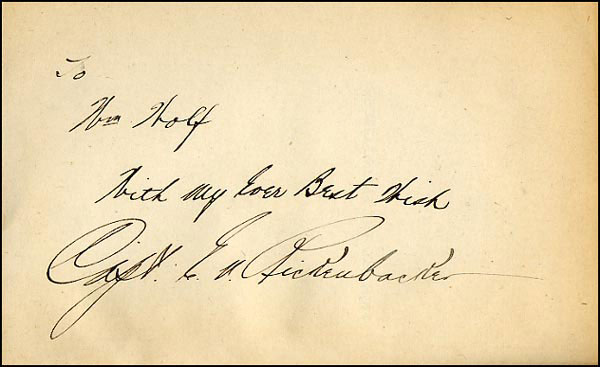 To
Wm Wolf
With My Ever Best Wish
Capt. E. V. Rickenbacker